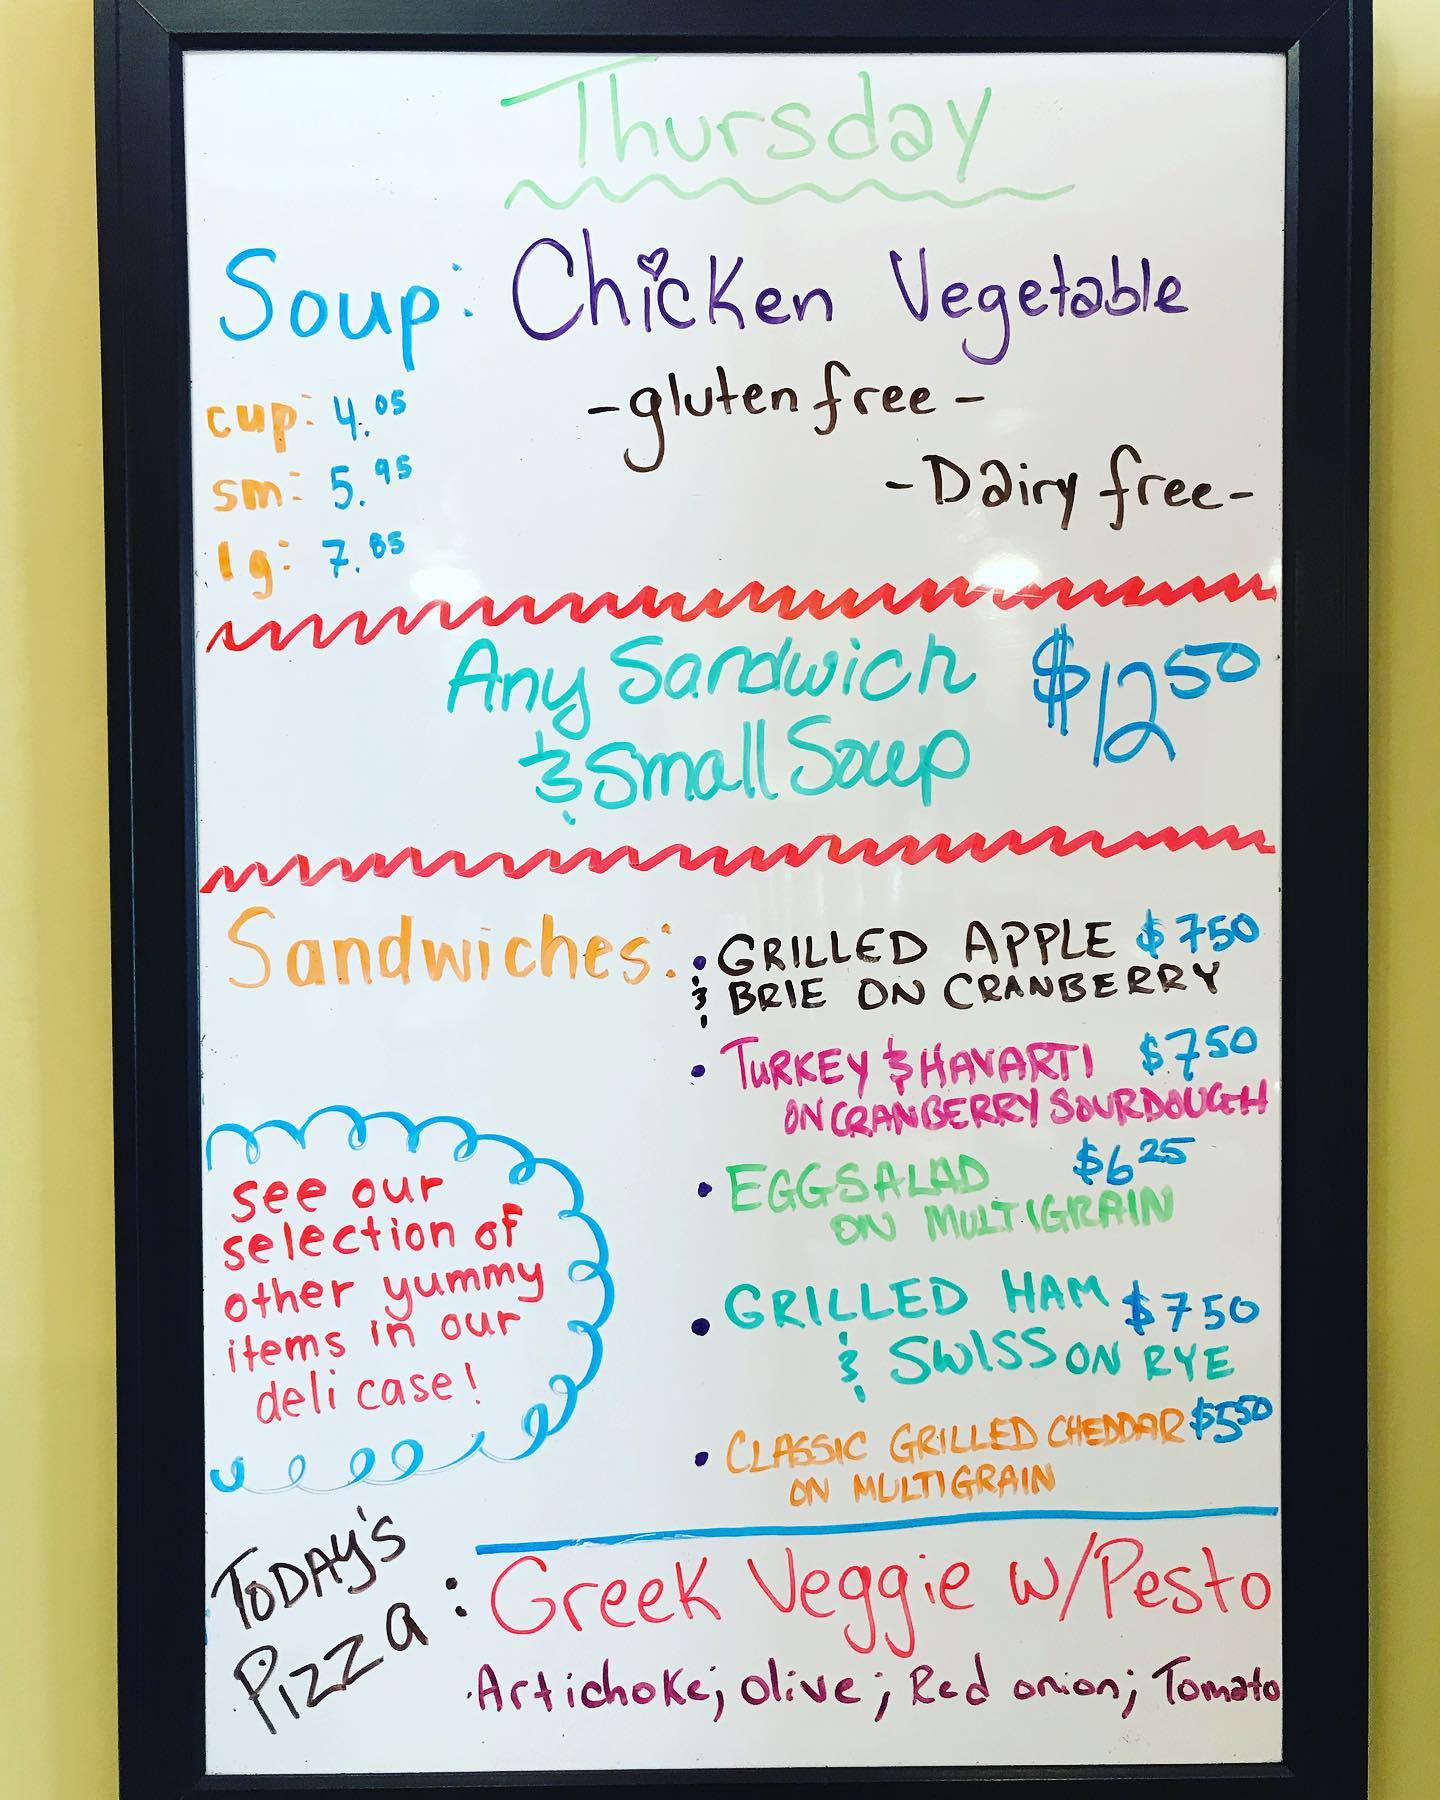 Thursday
Soup: Chicken Vegetable
cup: 4.05
-gluten free-
sm: 5.95
-Dairy free-
lg: 7.85
Any Sandwich $12 50
& Small Soup
Sandwiches:
• GRILLED APPLE $7 50
& BRIE ON CRANBERRY
• TURKEY & HAVARTI $7 50
ON CRANBERRY SOURDOUGH
• EGGSALAD $6 25
ON MULTIGRAIN
• GRILLED HAM $7 50
& SWISS ON RYE
• CLASSIC GRILLED CHEDDAR $5 50
ON MULTIGRAIN
see our
selection of
other yummy
items in our
deli case!
TODAY'S
Pizza: Greek Veggie w/Pesto
Artichoke; olive; Red onion; Tomato